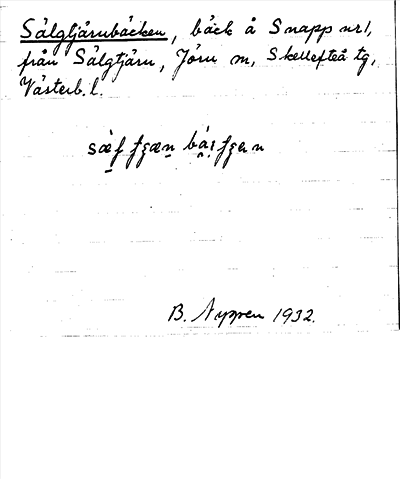 Sälgtjärnbäcken, bäck å Snapp nr 1,
från Sälgtjärn, Jörn sn, Skellefteå tg,
Västerb. l.
B. Nyppen 1932.